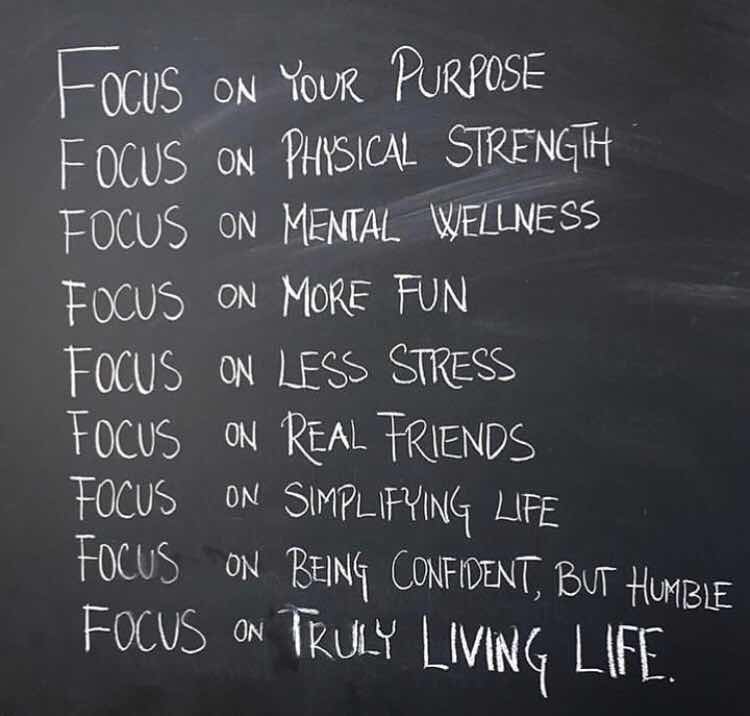 FOCUS ON YOUR PURPOSE
FOCUS ON PHYSICAL STRENGTH
FOCUS ON MENTAL WELLNESS
FOCUS ON MORE FUN
FOCUS ON LESS STRESS
FOCUS ON REAL FRIENDS
FOCUS ON SIMPLIFYING LIFE
FOCUS ON BEING CONFIDENT, BUT HUMBLE
FOCUS ON TRULY LIVING LIFE.